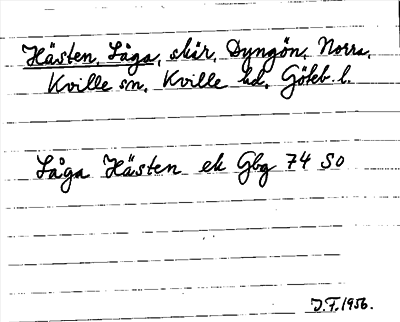 Hästen, Låga, skär, Dyngön, Norra,
Kville sn, Kville hd, Göteb. l.
Låga Hästen ek Gbg 74 SO
J.F. 1956.